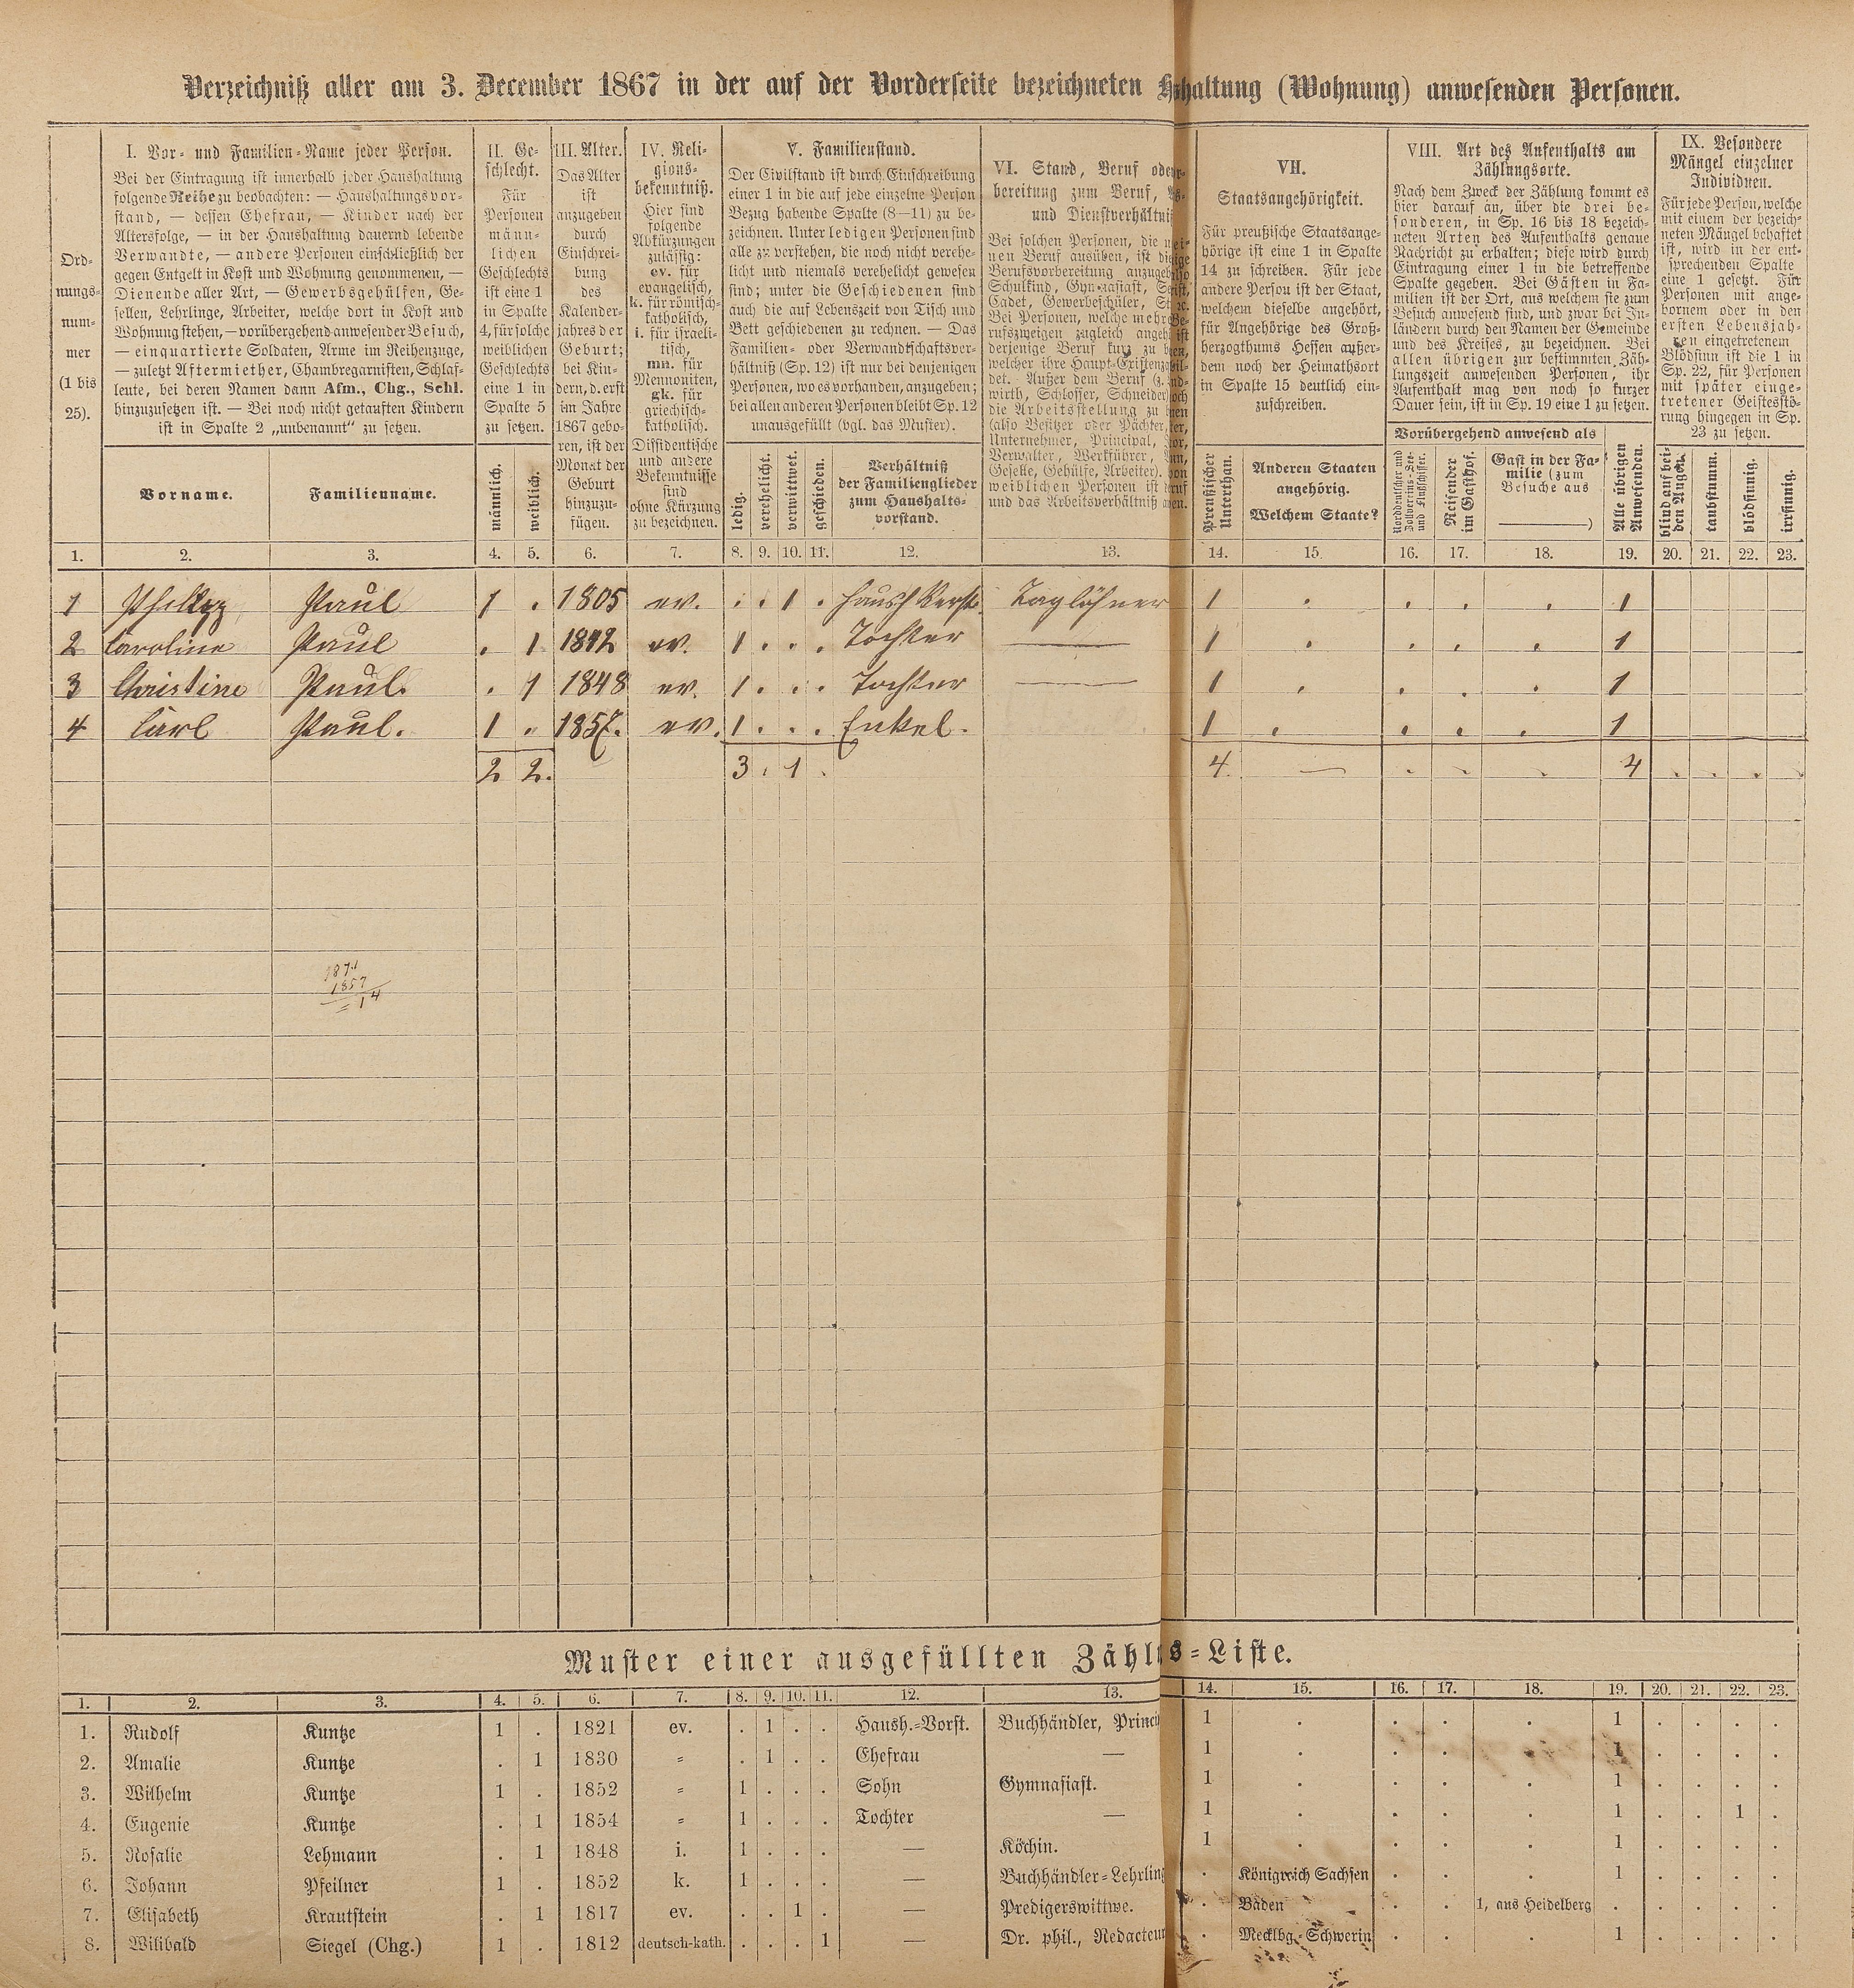 Verzeichniß aller am 3. December 1867 in der auf der Vorderseite bezeichneten haltung (Wohnung) anwesenden Personen.
Ord-
nungs-
num-
mer
(1 bis
25).
I. Vor- und Familien-Name jeder Person.
Bei der Eintragung ist innerhalb jeder Haushaltung
folgende Reihe zu beobachten: — Haushaltungsvor-
stand, — dessen Ehefrau, — Kinder nach der
Altersfolge, — in der Haushaltung dauernd lebende
Verwandte, — andere Personen einschließlich der
gegen Entgelt in Kost und Wohnung genommenen, —
Dienende aller Art, — Gewerbsgehülfen, Ge-
sellen, Lehrlinge, Arbeiter, welche dort in Kost und
Wohnung stehen, — vorübergehend anwesender Besuch,
— einquartierte Soldaten, Arme im Reihenzuge,
— zuletzt Aftermiether, Chambregarnisten, Schlaf-
leute, bei deren Namen dann Afm., Chg., Schl.
hinzuzusetzen ist. — Bei noch nicht getauften Kindern
ist in Spalte 2 „unbenannt“ zu setzen.
Vorname.
Familienname.
II. Ge-
schlecht.
Für
Personen
männ-
lichen
Geschlechts
ist eine 1
in Spalte
4, für solche
weiblichen
Geschlechts
eine 1 in
Spalte 5
zu setzen.
männlich.
weiblich.
III. Alter.
Das Alter
ist
anzugeben
durch
Einschrei-
bung
des
Kalender-
jahres der
Geburt;
bei Kin-
dern, d. erst
im Jahre
1867 gebo-
ren, ist der
Monat der
Geburt
hinzuzu-
fügen.
IV. Reli-
gions-
bekenntniß.
Hier sind
folgende
Abkürzungen
zulässig:
ev. für
evangelisch,
k. für römisch-
katholisch,
i. für israeli-
tisch,
mn. für
Mennoniten,
gk. für
griechisch-
katholisch.
Dissidentische
und andere
Bekenntnisse
sind
ohne Kürzung
zu bezeichnen.
V. Familienstand.
Der Civilstand ist durch Einschreibung
einer 1 in die auf jede einzelne Person
Bezug habende Spalte (8—11) zu be-
zeichnen. Unter ledigen Personen sind
alle zu verstehen, die noch nicht verehe-
licht und niemals verehelicht gewesen
sind; unter die Geschiedenen sind
auch die auf Lebenszeit von Tisch und
Bett geschiedenen zu rechnen. — Das
Familien- oder Verwandtschaftsver-
hältniß (Sp. 12) ist nur bei denjenigen
Personen, wo es vorhanden, anzugeben;
bei allen anderen Personen bleibt Sp. 12
unausgefüllt (vgl. das Muster).
ledig.
verehelicht.
verwittwet.
geschieden.
Verhältniß
der Familienglieder
zum Haushalts-
vorstand.
VI. Stand, Beruf oder
bereitung zum Beruf,
und Dienstverhältniß
Bei solchen Personen, die
nen Beruf ausüben, ist die
Berufsvorbereitung
Schulkind, Gymnasiast,
Cadet, Gewerbeschüler,
Bei Personen, welche
rufszweigen zugleich
derjenige Beruf kurz zu
welcher ihre Haupt-Existenz
det. Außer dem Beruf (z.
wirth, Schlosser, Schneider
die Arbeitsstellung zu
(also Besitzer oder Pächter,
Unternehmer, Principal,
Verwalter, Werkführer,
Geselle, Gehülfe, Arbeiter).
weiblichen Personen ist
und das Arbeitsverhältniß
VII.
Staatsangehörigkeit.
Für preußische Staatsange-
hörige ist eine 1 in Spalte
14 zu schreiben. Für jede
andere Person ist der Staat,
welchem dieselbe angehört,
für Angehörige des Groß-
herzogthums Hessen außer-
dem noch der Heimathsort
in Spalte 15 deutlich ein-
zuschreiben.
Preußischer
Unterthan.
Anderen Staaten
angehörig.
Welchem Staate?
VIII. Art des Aufenthalts am
Zählungsorte.
Nach dem Zweck der Zählung kommt es
hier darauf an, über die drei be-
sonderen, in Sp. 16 bis 18 bezeich-
neten Arten des Aufenthalts genaue
Nachricht zu erhalten; diese wird durch
Eintragung einer 1 in die betreffende
Spalte gegeben. Bei Gästen in Fa-
milien ist der Ort, aus welchem sie zum
Besuch anwesend sind, und zwar bei In-
ländern durch den Namen der Gemeinde
und des Kreises, zu bezeichnen. Bei
allen übrigen zur bestimmten Zäh-
lungszeit anwesenden Personen, ihr
Aufenthalt mag von noch so kurzer
Dauer sein, ist in Sp. 19 eine 1 zu setzen.
Vorübergehend anwesend als
Norddeutscher und
Zollvereins-See-
und Flußschiffer.
Reisender
im Gasthof.
Gast in der Fa-
milie (zum
Besuche aus
)
Alle übrigen
Anwesenden.
IX. Besondere
Mängel einzelner
Individuen.
Für jede Person, welche
mit einem der bezeich-
neten Mängel behaftet
ist, wird in der ent-
sprechenden Spalte
eine 1 gesetzt. Für
Personen mit ange-
bornem oder in den
ersten Lebensjah-
ren eingetretenem
Blödsinn ist die 1 in
Sp. 22, für Personen
mit später einge-
tretener Geistesstö-
rung hingegen in Sp.
23 zu setzen.
blind auf bei-
den Augen.
taubstumm.
blödsinnig.
irrsinnig.
1. 2. 3. 4. 5. 6. 7. 8. 9. 10. 11. 12. 13. 14. 15. 16. 17. 18. 19. 20. 21. 22. 23.
1 Philipp Paul 1 . 1805 ev. . . 1 . Haush Vorst. Taglöhner 1 . . . . 1
2 Caroline Paul . 1 1842 ev. 1 . . . Tochter — 1 . . . . 1
3 Christine Paul. . 1 1848 ev. 1 . . . Tochter — 1 . . . . 1
4 Carl Paul. 1 . 1857. ev. 1 . . . Enkel. 1 . . . . 1
2 2. 3 . 1 . 4. — . . . 4 . . . .
1871
1857
= 14
Muster einer ausgefüllten Zähl s-Liste.
1. 2. 3. 4. 5. 6. 7. 8. 9. 10. 11. 12. 13. 14. 15. 16. 17. 18. 19. 20. 21. 22. 23.
1. Rudolf Kuntze 1 . 1821 ev. . 1 . . Haush.-Vorst. Buchhändler, Princi 1 . . . . 1 . . . .
2. Amalie Kuntze . 1 1830 = . 1 . . Ehefrau — 1 . . . . 1 . . . .
3. Wilhelm Kuntze 1 . 1852 = 1 . . . Sohn Gymnasiast. 1 . . . . 1 . . . .
4. Eugenie Kuntze . 1 1854 = 1 . . . Tochter — 1 . . . . 1 . . 1 .
5. Rosalie Lehmann . 1 1848 i. 1 . . . — Köchin. 1 . . . . 1 . . . .
6. Johann Pfeilner 1 . 1852 k. 1 . . . — Buchhändler-Lehrling . Königreich Sachsen . . . 1 . . . .
7. Elisabeth Krautstein . 1 1817 ev. . . 1 . — Predigerswittwe. . Baden . . 1, aus Heidelberg . . . . .
8. Wilibald Siegel (Chg.) 1 . 1812 deutsch-kath. . . . 1 — Dr. phil., Redacteur . Mecklbg.-Schwerin . . . 1 . . . .